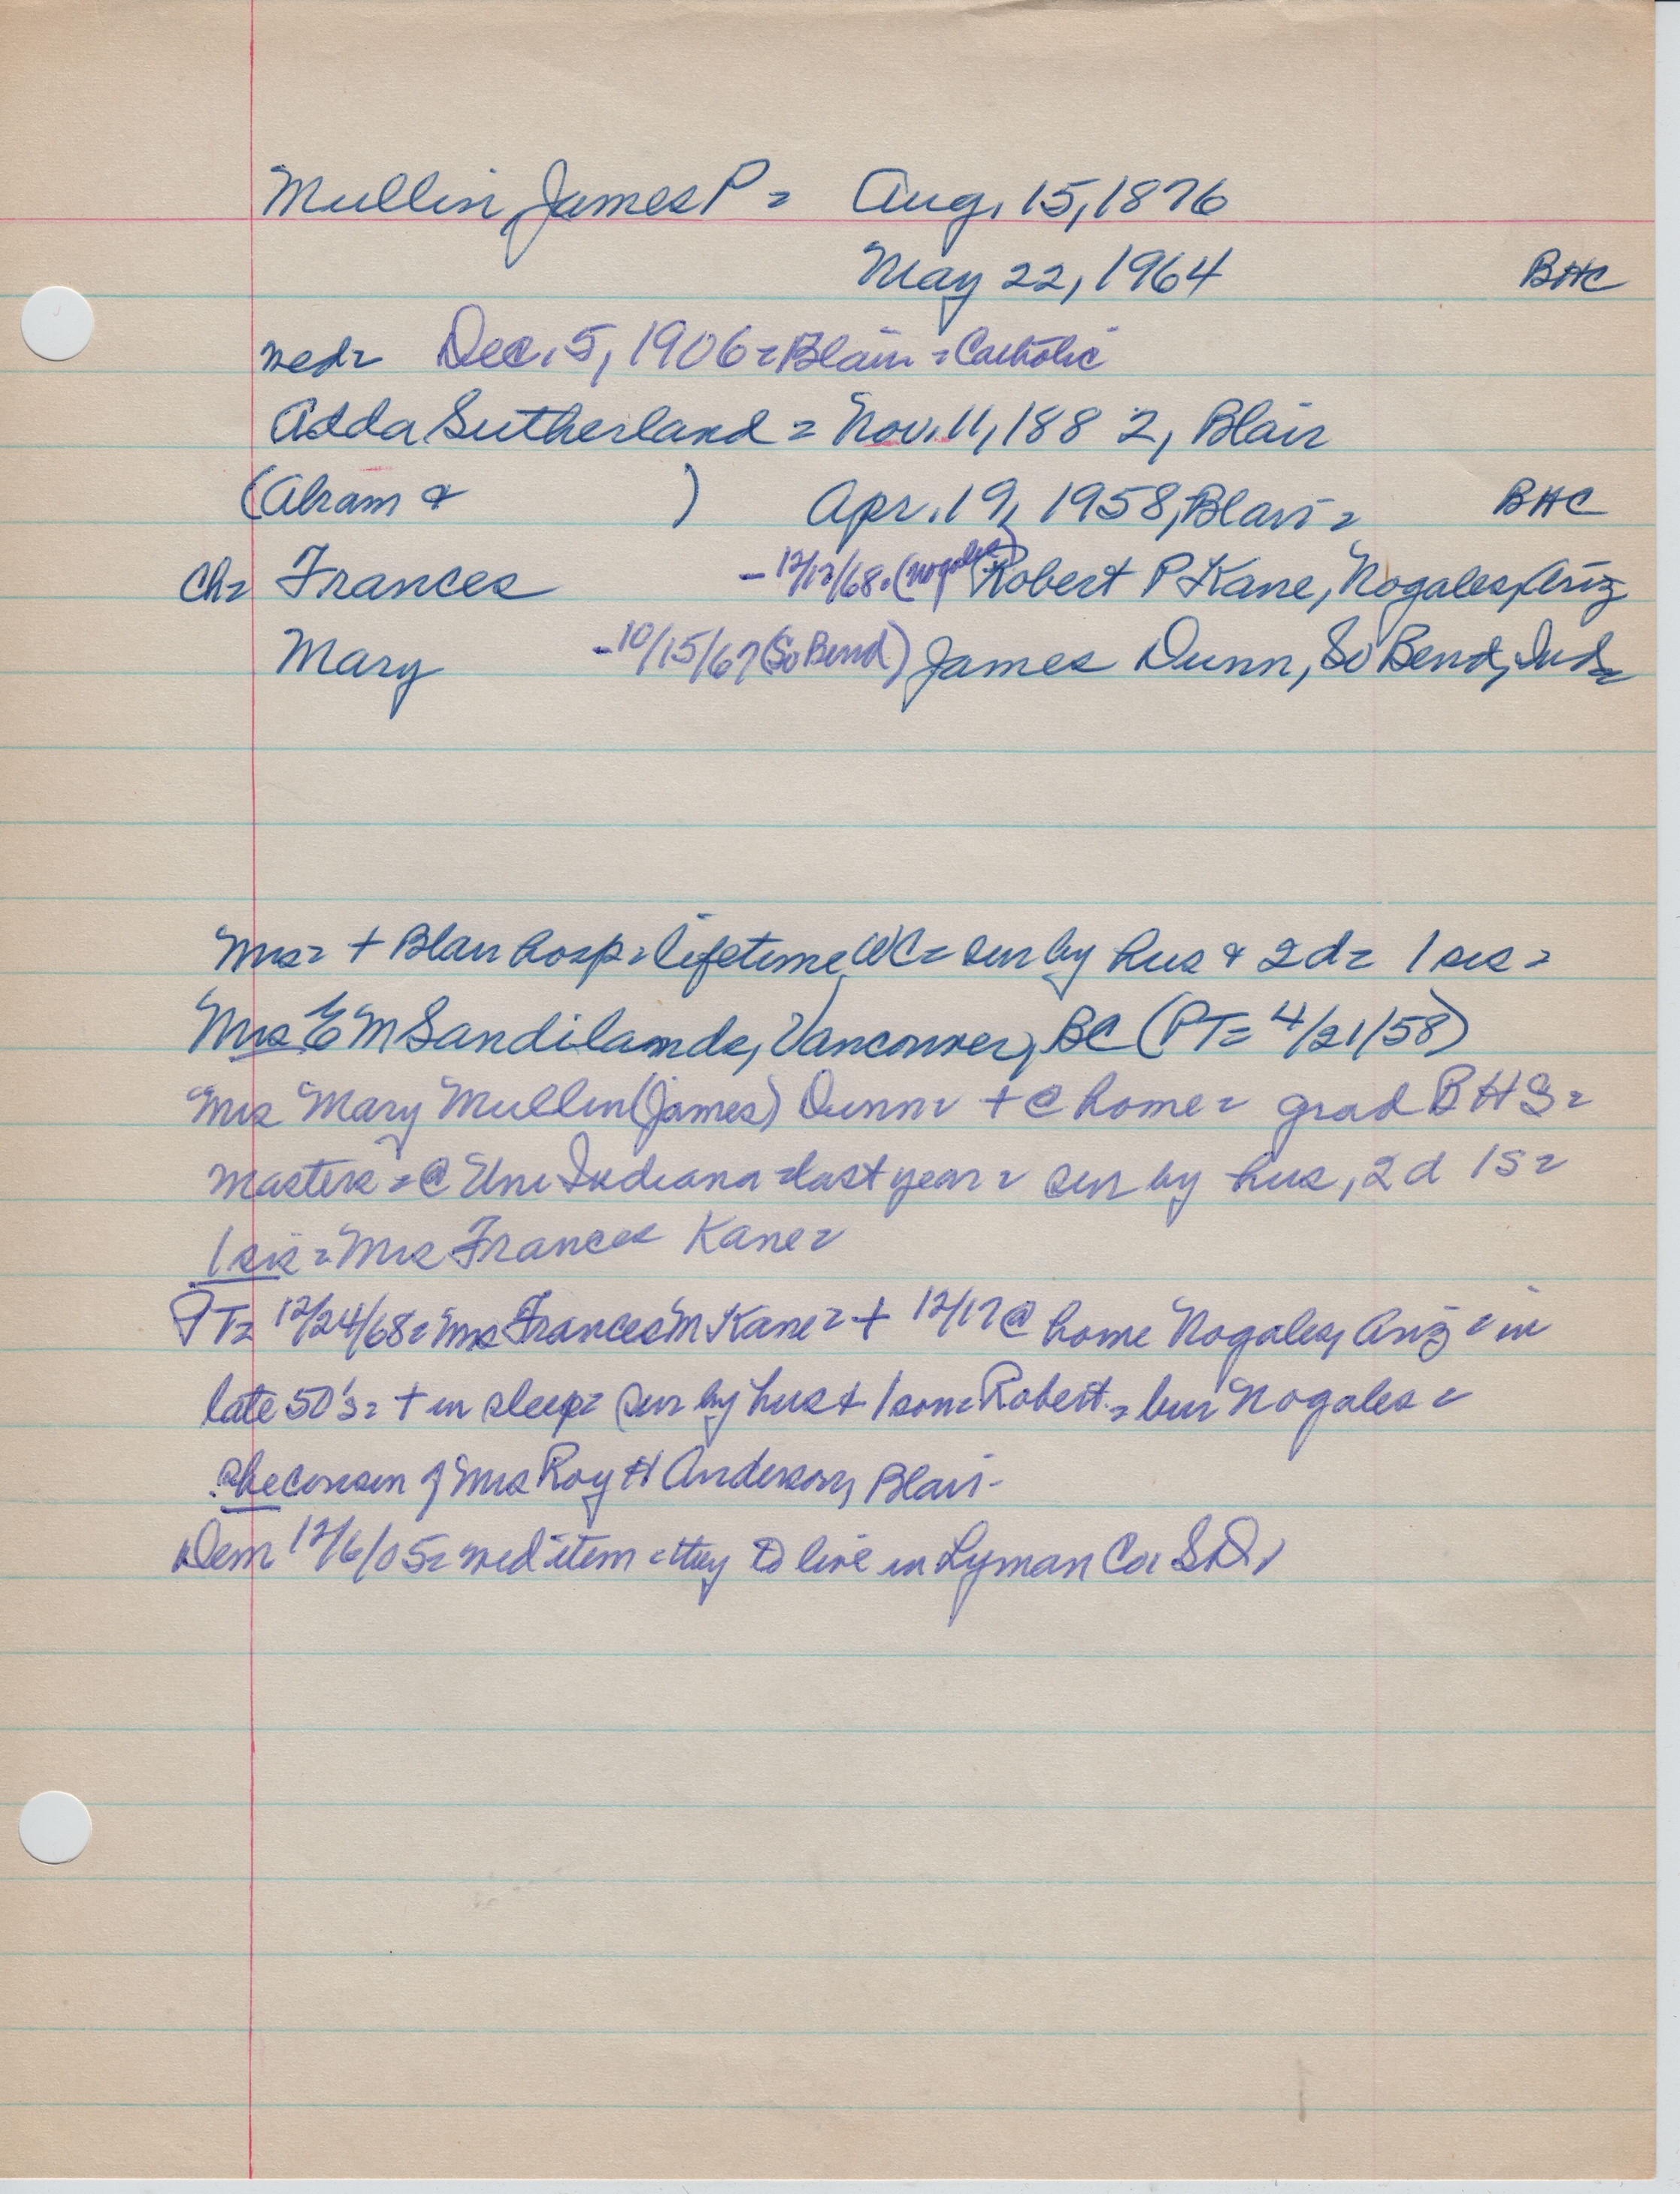 Mullin James P = Aug. 15, 1876
May 22, 1964 BHC
wed = Dec. 5, 1906 = Blair = Catholic
Adda Sutherland = Nov. 11, 1882, Blair
(Abram & ) Apr. 19, 1958, Blair = BHC
Ch = Frances - 12/17/68 = (Nogales) Robert P Kane, Nogales, Ariz
Mary - 10/15/67 (So Bend) James Dunn, So Bend, Ind =
Mrs = + Blair hosp = lifetime WC = sur by hus & 2 d = 1 sis =
Mrs E M Sandilands, Vancouver, BC (PT = 4/21/58)
Mrs Mary Mullin (James) Dunn = + @ home = grad BHS =
masters = @ Uni Indiana = last year = sur by hus, 2 d 1 S =
1 sis = Mrs Frances Kane =
PT = 12/24/68 = Mrs Frances M Kane = + 12/17 @ home Nogales, Ariz = in
late 50's = + in sleep = sur by hus & 1 son = Robert = bur Nogales =
she cousin of Mrs Roy H Anderson, Blair -
Dem 12/6/05 = wed item = they to live in Lyman Co S.D.